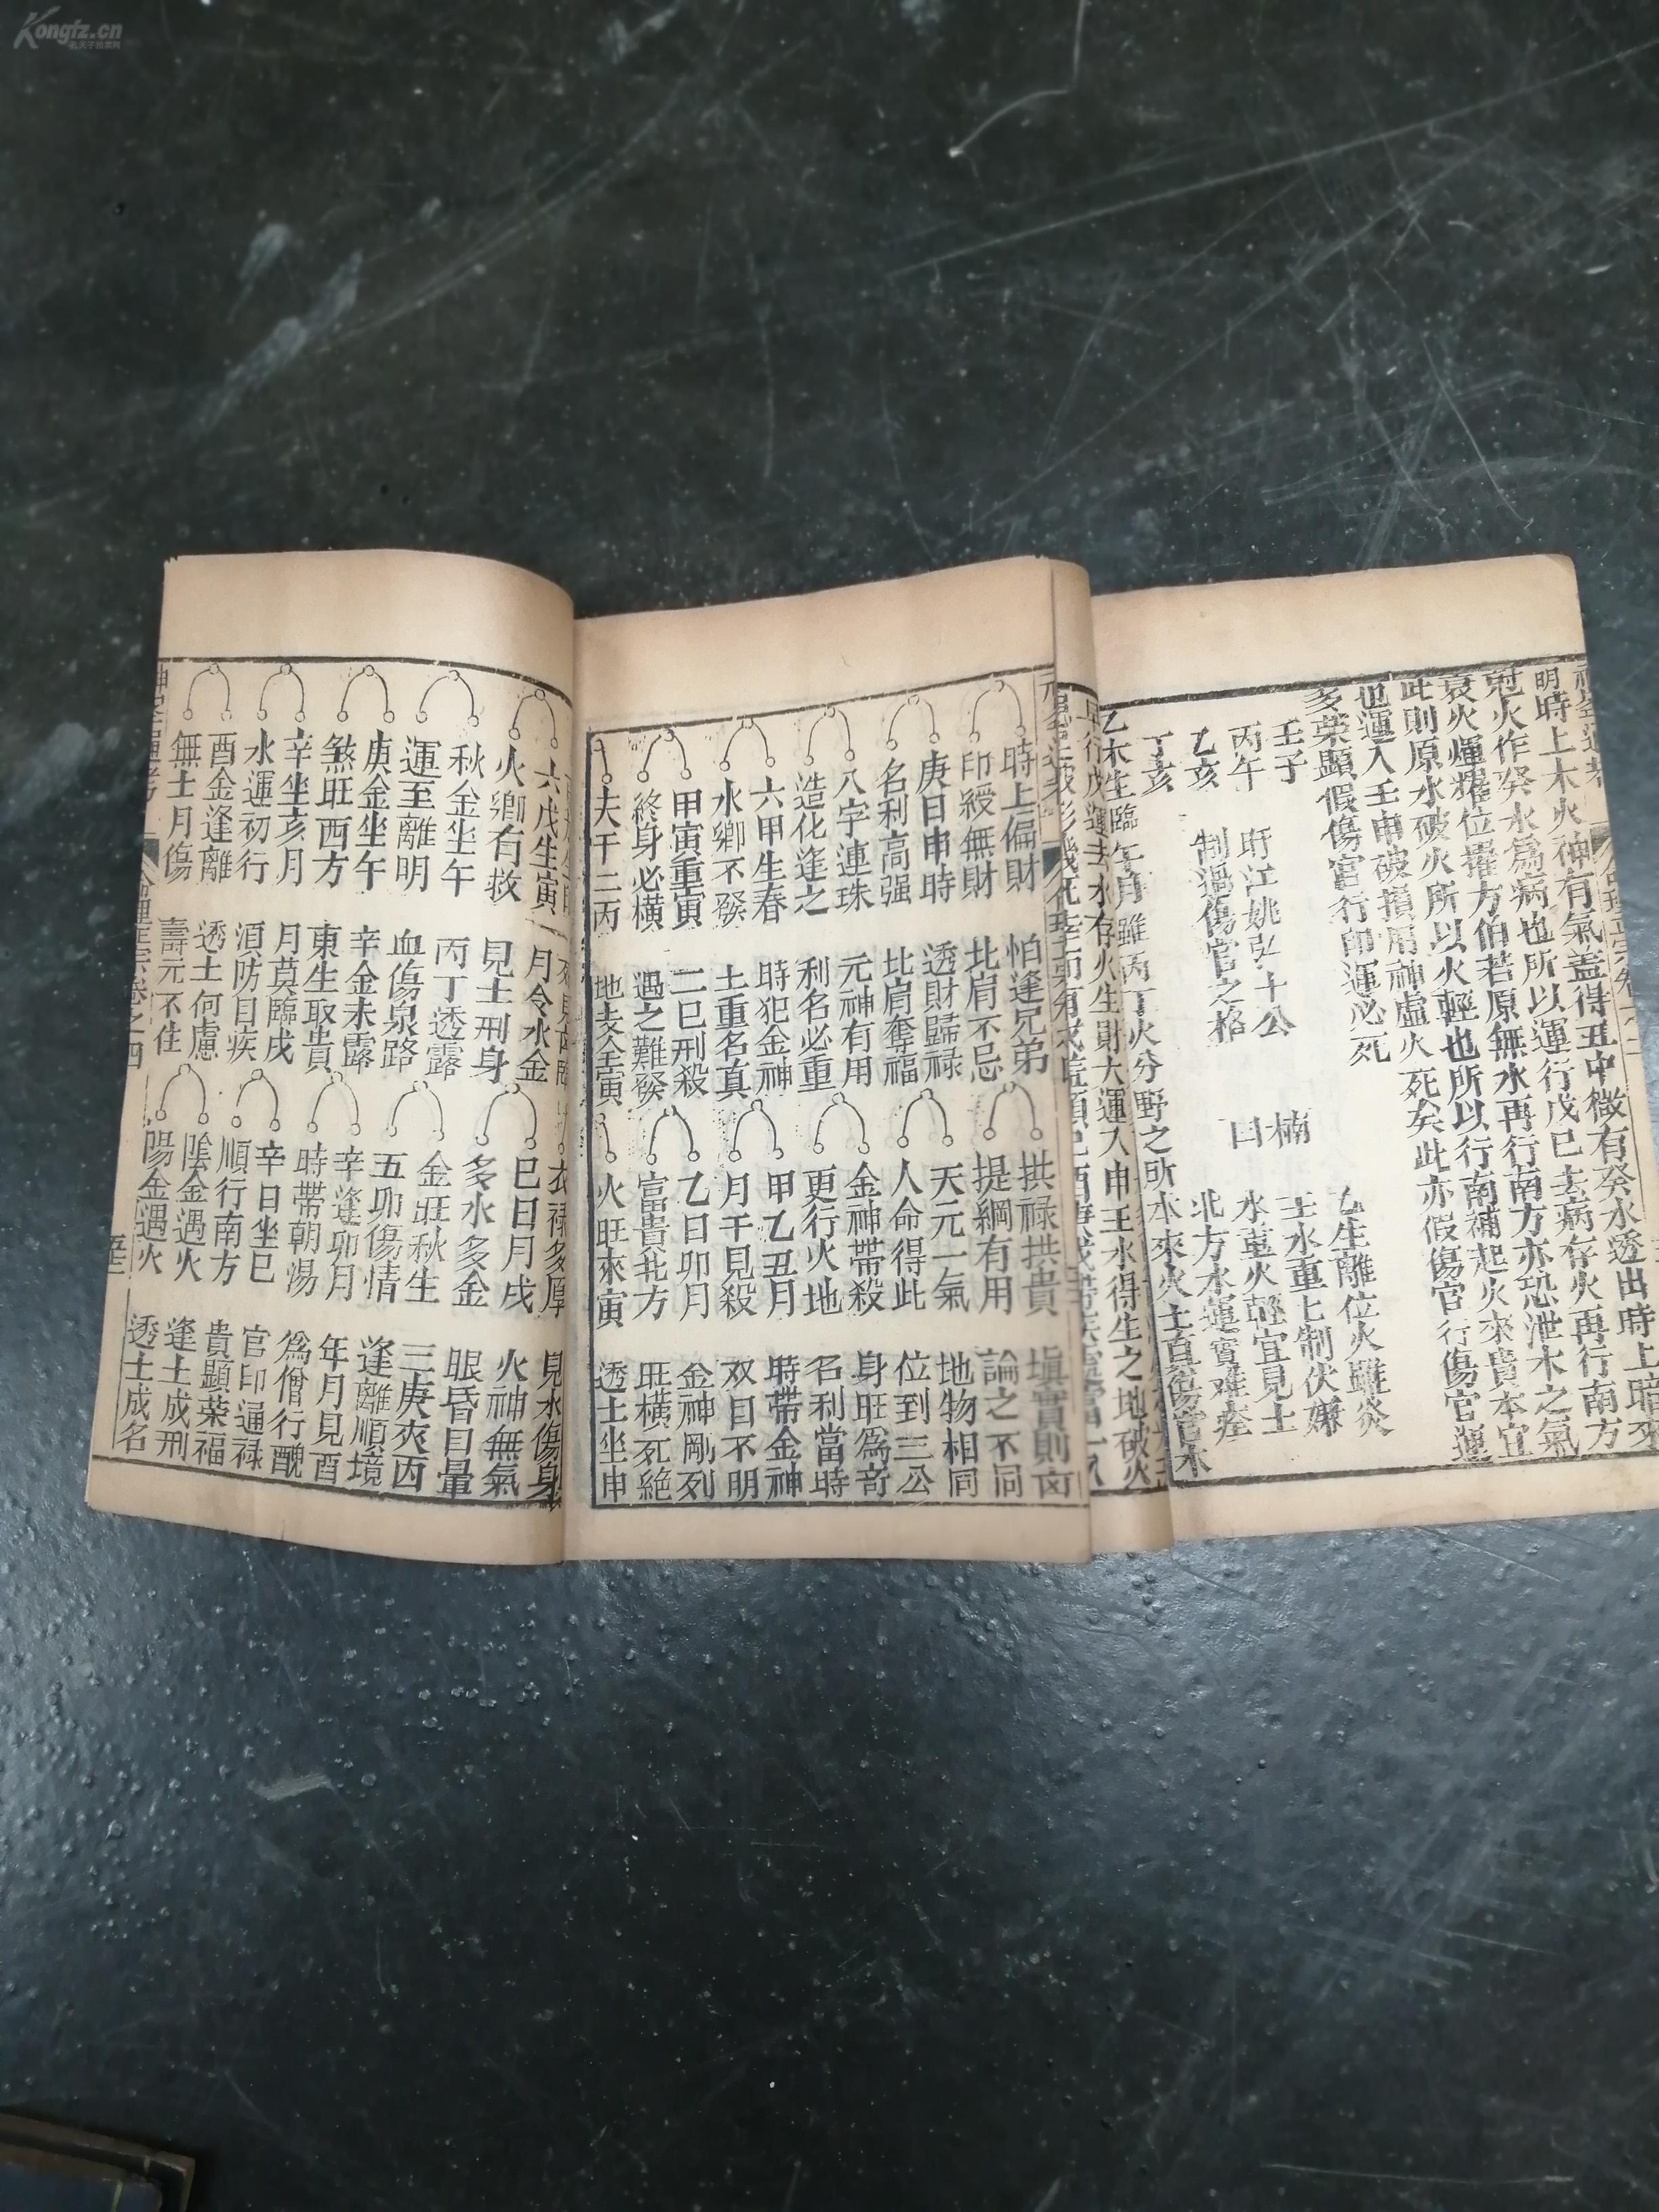 明時上木火神有氣蓋得丑中微有癸水透出時上暗來
尅火作癸水為病也所以運行戊巳去病存火再行南方
衰火煇耀位擢方伯若原無水再行南方亦恐泄木之氣
此則原水破火所以火輕也所以行南補起火來貴本宜
也運入壬申破損用神虛火死矣此亦假傷官行傷官運
多榮顯假傷官行印運必死
壬子
丙午
乙亥
丁亥
盱江姚弘十公
制過傷官之格
楠
曰
乙生離位火雖炎
壬水重七制伏嫌
水重火輕宜見土
北方水運實難痊
乙木生臨午月雖丙丁火分野之所本來火土真傷官木
行戊運去水存火生財大運入申壬水得生之地破火
時上偏財 怕逢兄弟
印綬無財 比肩不忌
庚日申時 透財歸禄
名利高强 比肩奪福
八字連珠 元神有用
造化逢之 利名必重
六甲生春 時犯金神
水鄉不發 土重名真
甲寅重寅 二巳刑殺
終身必橫 遇之難發
夫干二丙 地支全寅
拱禄拱貴 塡實則㐫
提綱有用 論之不同
天元一氣 地物相同
人命得此 位到三公
金神帶殺 身旺為奇
更行火地 名利當時
甲乙丑月 時帶金神
月干見殺 双目不明
乙日卯月 金神剛列
富貴北方 旺橫死絶
火旺來寅 透土坐申
六戊生寅 月令水金
火鄉有救 見土刑身
秋金坐午 丙丁透露
運至離明 血傷泉路
庚金坐午 辛金未露
煞旺西方 東生取貴
辛坐亥月 月莫臨戌
水運初行 湏防目疾
酉金逢離 透土何慮
無土月傷 壽元不住
衣禄多厚 見水傷身
巳日月戌 火神無氣
多水多金 眼昏目暈
金旺秋生 三庚夾丙
五卯傷情 逢離順境
辛逢卯月 年月見酉
時帶朝湯 為僧行醜
辛日坐巳 官印逼禄
順行南方 貴顯榮福
陰金遇火 逢土成刑
陽金遇火 透土成名
命理正宗卷之四
Kongfz.cn